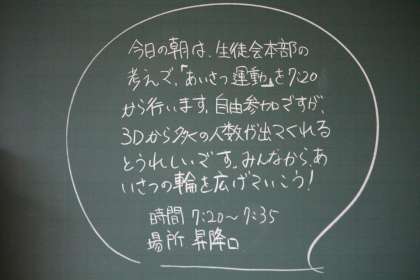 今日の朝は、生徒会本部の
考えで、「あいさつ運動」を7:20
から行います。自由参加ですが、
3Dから多くの人数が出てくれる
とうれしいです。みんなから、あ
いさつの輪を広げていこう！
時間 7:20〜7:35
場所 昇降口